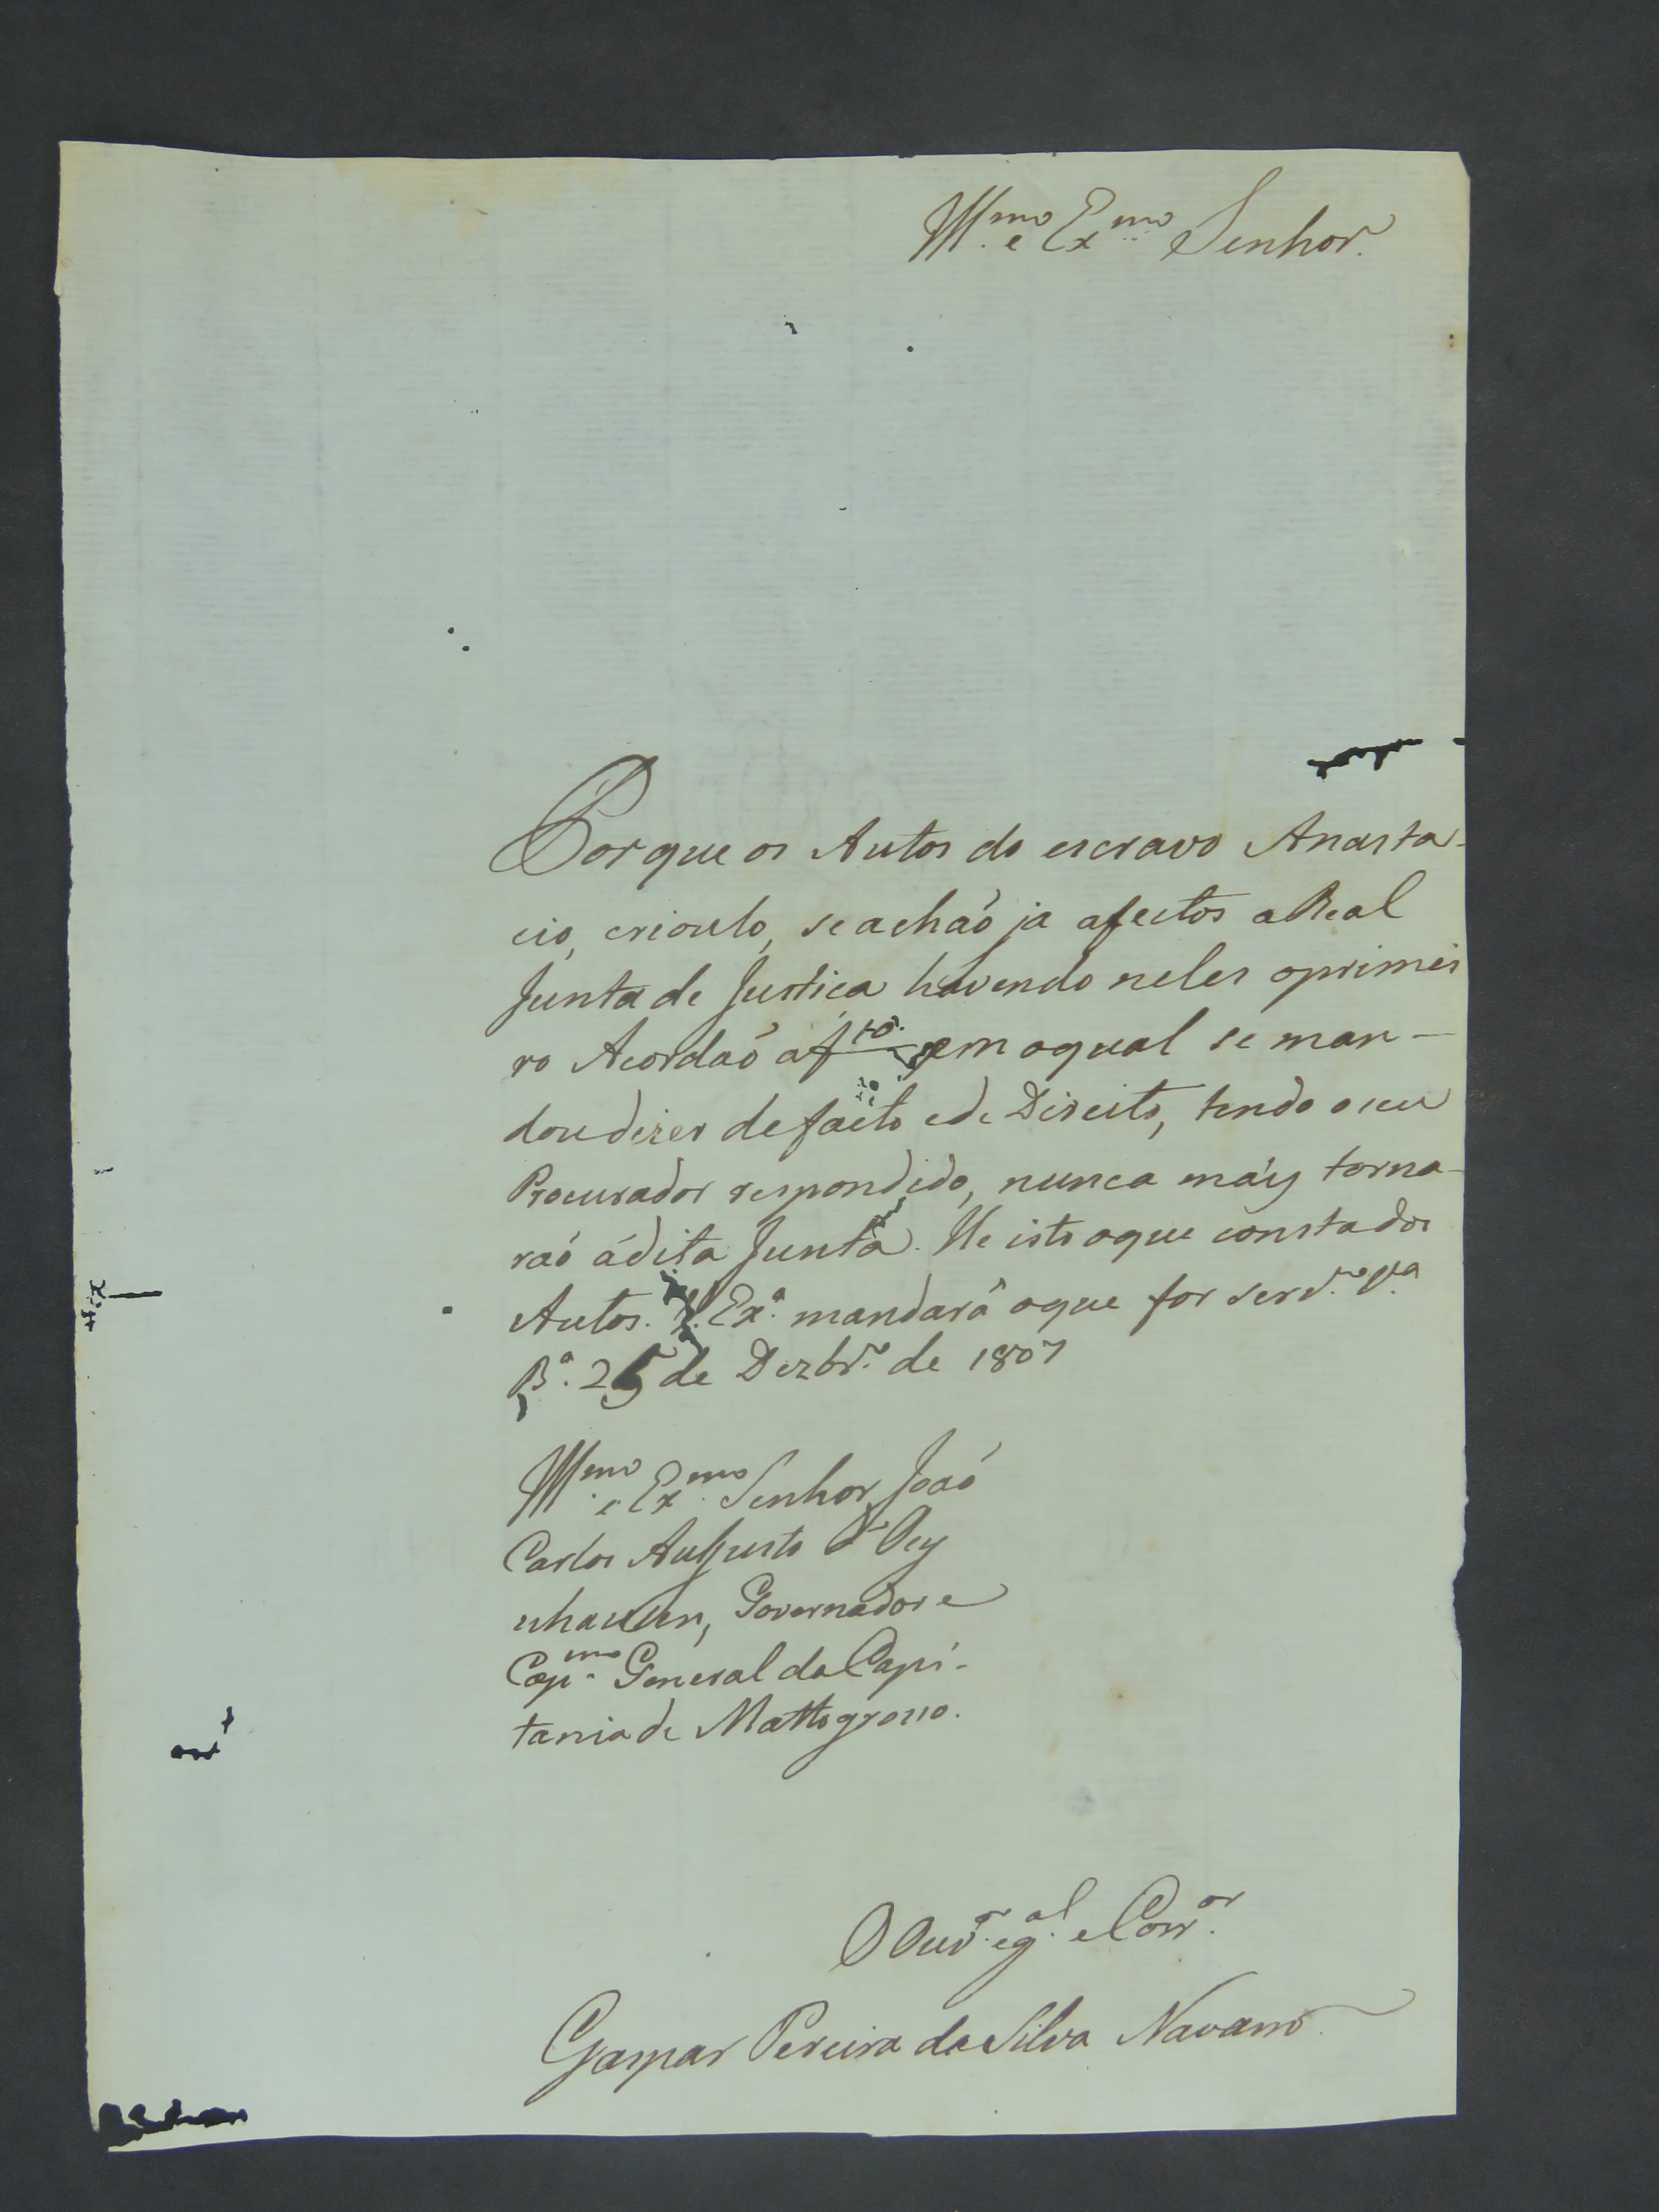 Ill.mo e Ex.mo Senhor.
Porque os Autos do escravo Anasta-
cio, crioulo, se achaõ ja afectos a Real
Junta de Justica havendo neles o primei
ro Acordaõ a f em o qual se man-
dou dizer de facto e de Direito, tendo o seu
Procurador respondido, nunca máis torna-
raõ ádita Junta. He isto o que consta dos
Autos. V. Ex.a mandará o que for serv.o V.a
B.a 25 de Dezbr.o de 1807
Ill.mo e Ex.mo Senhor Joaõ
Carlos Augusto d'Oey
nhausen, Governador e
Cap.m General da Capi-
tania de Mattogrosso.
O Ouv.or g.al e Corr.or
Gaspar Pereira da Silva Navarro